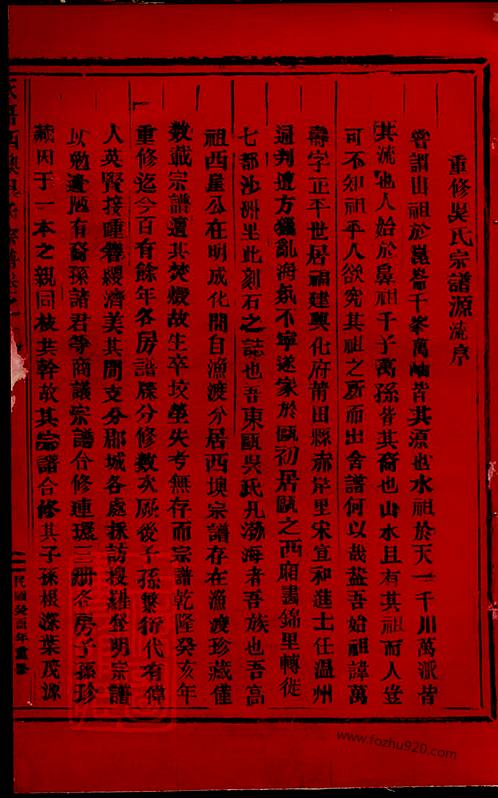 重修吳氏宗譜源流序
嘗謂山祖於崑崙千峯萬岫皆其源也水祖於天一千川萬派皆
其流也人始於鼻祖千子萬孫皆其裔也山水且有其祖而人豈
可不知祖乎人欲究其祖之所而出舍譜何以哉蓋吾始祖諱萬
壽字正平世居福建興化府莆田縣赤岸里宋宣和進士任溫州
通判遭方獵亂海氛不寧遂家於甌初居甌之西廂書錦里轉徙
七都沙洲里此刻石之誌也吾東甌吳氏凡渤海者吾族也吾高
祖西星公在明成化間自漁渡分居西墺宗譜存在漁渡珍藏僅
數載宗譜遭其焚燬故生卒坟塋失考無存而宗譜乾隆癸亥年
重修迄今百有餘年各房譜牒分修數次厥後子孫繁衍代有偉
人英賢接踵簪纓濟美其間支分郡城各處採訪搜羅登明宗譜
以勉遺地有裔孫諸君等商議宗譜合修連環三冊各房子孫珍
藏因于一本之親同枝共幹故其宗譜合修其子孫根深葉茂源
民國癸酉年重修
www.fozhu920.com